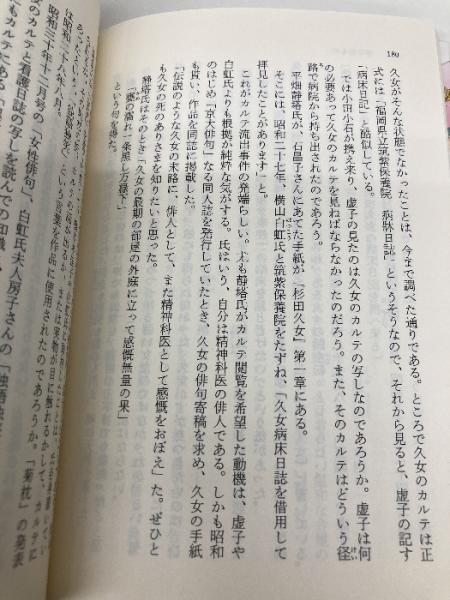 180
久女がそんな状態でなかったことは、今まで調べた通りである。ところで久女のカルテは正
式には「福岡県立筑紫保養院　病牀日誌」というそうなので、それから見ると、虚子の記す
「病床日記」と酷似している。
では小田小石が携え来り、虚子の見たのは久女のカルテの写しなのであろうか。虚子は何
の必要あって久女のカルテを見ねばならなかったのだろう。また、そのカルテはどういう径
路で病院から持ち出されたのであろう。
平畑静塔氏が、石昌子さんにあてた手紙が『杉田久女』第一章にある。
そこには、昭和二十七年、横山白虹氏と筑紫保養院をたずね、「久女病床日誌を借用して
拝見したことがあります」と。
これがカルテ流出事件の発端らしい。尤も静塔氏がカルテ閲覧を希望した動機は、虚子や
白虹氏よりも根拠が純粋な気がする。氏はいう、自分は精神科医の俳人である。しかも昭和
のはじめ「京大俳句」なる同人誌を発行していたとき、久女の俳句寄稿を求め、久女の手紙
も貰い、作品を同誌に掲載した。
「伝説のような久女の末路に、俳人として、また精神科医として感慨をおぼえ」た。ぜひと
も久女の死のありさまを知りたいと思った。
静塔氏はそのとき「久女の最期の部屋の外庭に立って感慨無量の果」
という句を得た。
昭和三十年八月、
という言葉を作品に使用されたのであろうか。「菊枕」の発表
昭和二十八年十二月号の「女性俳句」、白虹氏夫人房子さんの「独語独笑
女のカルテと看護日誌の写しを読んでの知識